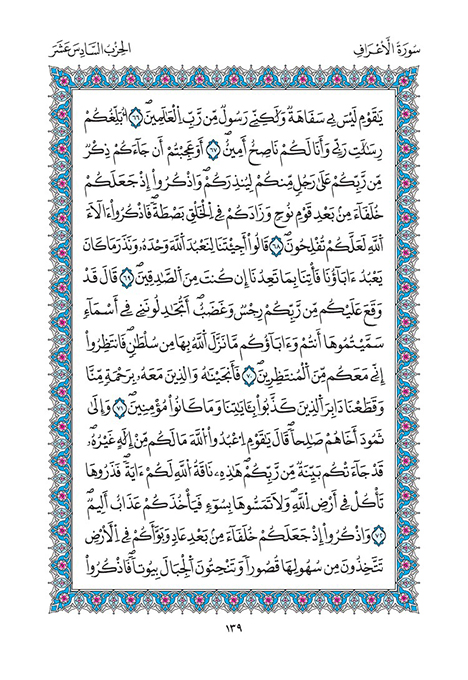 سُورَةُ الْأَعْرَافِ
الحِزْبُ السَّادِسَ عَشَرَ
يَٰقَوْمِ لَيْسَ بِي سَفَاهَةٌ وَلَٰكِنِّي رَسُولٌ مِّن رَّبِّ اِ۬لْعَٰلَمِينَۖ ٦٦ أُبَلِّغُكُمْ
رِسَٰلَٰتِ رَبِّي وَأَنَا لَكُمْ نَاصِحٌ أَمِينٌۖ ٦٧ أَوَعَجِبْتُمْ أَن جَآءَكُمْ ذِكْرٌ
مِّن رَّبِّكُمْ عَلَىٰ رَجُلٍ مِّنكُمْ لِيُنذِرَكُمْۖ وَاذْكُرُوٓا۟ إِذْ جَعَلَكُمْ
خُلَفَآءَ مِنۢ بَعْدِ قَوْمِ نُوحٍ وَزَادَكُمْ فِي اِ۬لْخَلْقِ بَصْۜطَةًۖ فَاذْكُرُوٓا۟ ءَالَآءَ
اَ۬للَّهِ لَعَلَّكُمْ تُفْلِحُونَۖ ٦٨ قَالُوٓا۟ أَجِئْتَنَا لِنَعْبُدَ اَ۬للَّهَ وَحْدَهُۥ وَنَذَرَ مَا كَانَ
يَعْبُدُ ءَابَآؤُنَا فَأْتِنَا بِمَا تَعِدُنَآ إِن كُنتَ مِنَ اَ۬لصَّٰدِقِينَۖ ٦٩ قَالَ قَدْ
وَقَعَ عَلَيْكُم مِّن رَّبِّكُمْ رِجْسٌ وَغَضَبٌۖ أَتُجَٰدِلُونَنِي فِيٓ أَسْمَآءٍ
سَمَّيْتُمُوهَآ أَنتُمْ وَءَابَآؤُكُم مَّا نَزَّلَ اَ۬للَّهُ بِهَا مِن سُلْطَٰنٍۖ فَانتَظِرُوٓا۟
إِنِّي مَعَكُم مِّنَ اَ۬لْمُنتَظِرِينَۖ ٧٠ فَأَنجَيْنَٰهُ وَالذِينَ مَعَهُۥ بِرَحْمَةٍ مِّنَّا
وَقَطَعْنَا دَابِرَ اَ۬لذِينَ كَذَّبُوا۟ بِـَٔايَٰتِنَا وَمَا كَانُوا۟ مُؤْمِنِينَۖ ٧١ وَإِلَىٰ
ثَمُودَ أَخَاهُمْ صَٰلِحاًۖ قَالَ يَٰقَوْمِ اِ۟عْبُدُوا۟ اُ۬للَّهَ مَا لَكُم مِّنْ إِلَٰهٍ غَيْرُهُۥۖ
قَدْ جَآءَتْكُم بَيِّنَةٌ مِّن رَّبِّكُمْۖ هَٰذِهِۦ نَاقَةُ اُ۬للَّهِ لَكُمْ ءَايَةًۖ فَذَرُوهَا
تَأْكُلْ فِيٓ أَرْضِ اِ۬للَّهِ وَلَا تَمَسُّوهَا بِسُوٓءٍ فَيَأْخُذَكُمْ عَذَابٌ أَلِيمٌۖ
٧٢ وَاذْكُرُوٓا۟ إِذْ جَعَلَكُمْ خُلَفَآءَ مِنۢ بَعْدِ عَادٍ وَبَوَّأَكُمْ فِي اِ۬لْأَرْضِ
تَتَّخِذُونَ مِن سُهُولِهَا قُصُوراً وَتَنْحِتُونَ اَ۬لْجِبَالَ بِيُوتاًۖ فَاذْكُرُوٓا۟
١٣٩